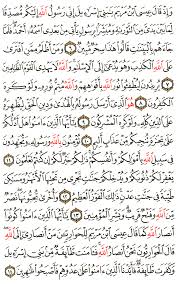 وَإِذْ قَالَ عِيسَى ابْنُ مَرْيَمَ يَٰبَنِىٓ إِسْرَٰٓءِيلَ إِنِّى رَسُولُ ٱللَّهِ إِلَيْكُم مُّصَدِّقًا
لِّمَا بَيْنَ يَدَىَّ مِنَ ٱلتَّوْرَىٰةِ وَمُبَشِّرًۢا بِرَسُولٍ يَأْتِى مِنۢ بَعْدِى ٱسْمُهُۥٓ أَحْمَدُ فَلَمَّا
جَآءَهُم بِٱلْبَيِّنَٰتِ قَالُوا۟ هَٰذَا سِحْرٌ مُّبِينٌ ٦ وَمَنْ أَظْلَمُ مِمَّنِ ٱفْتَرَىٰ
عَلَى ٱللَّهِ ٱلْكَذِبَ وَهُوَ يُدْعَىٰٓ إِلَى ٱلْإِسْلَٰمِ وَٱللَّهُ لَا يَهْدِى ٱلْقَوْمَ ٱلظَّٰلِمِينَ
٧ يُرِيدُونَ لِيُطْفِـُٔوا۟ نُورَ ٱللَّهِ بِأَفْوَٰهِهِمْ وَٱللَّهُ مُتِمُّ نُورِهِۦ وَلَوْ كَرِهَ
ٱلْكَٰفِرُونَ ٨ هُوَ ٱلَّذِىٓ أَرْسَلَ رَسُولَهُۥ بِٱلْهُدَىٰ وَدِينِ ٱلْحَقِّ لِيُظْهِرَهُۥ
عَلَى ٱلدِّينِ كُلِّهِۦ وَلَوْ كَرِهَ ٱلْمُشْرِكُونَ ٩ يَٰٓأَيُّهَا ٱلَّذِينَ ءَامَنُوا۟ هَلْ أَدُلُّكُمْ
عَلَىٰ تِجَٰرَةٍ تُنجِيكُم مِّنْ عَذَابٍ أَلِيمٍ ١٠ تُؤْمِنُونَ بِٱللَّهِ وَرَسُولِهِۦ وَتُجَٰهِدُونَ
فِى سَبِيلِ ٱللَّهِ بِأَمْوَٰلِكُمْ وَأَنفُسِكُمْ ذَٰلِكُمْ خَيْرٌ لَّكُمْ إِن كُنتُمْ تَعْلَمُونَ ١١
يَغْفِرْ لَكُمْ ذُنُوبَكُمْ وَيُدْخِلْكُمْ جَنَّٰتٍ تَجْرِى مِن تَحْتِهَا ٱلْأَنْهَٰرُ وَمَسَٰكِنَ
طَيِّبَةً فِى جَنَّٰتِ عَدْنٍ ذَٰلِكَ ٱلْفَوْزُ ٱلْعَظِيمُ ١٢ وَأُخْرَىٰ تُحِبُّونَهَا نَصْرٌ
مِّنَ ٱللَّهِ وَفَتْحٌ قَرِيبٌ وَبَشِّرِ ٱلْمُؤْمِنِينَ ١٣ يَٰٓأَيُّهَا ٱلَّذِينَ ءَامَنُوا۟ كُونُوٓا۟
أَنصَارَ ٱللَّهِ كَمَا قَالَ عِيسَى ٱبْنُ مَرْيَمَ لِلْحَوَارِيِّۦنَ مَنْ أَنصَارِىٓ إِلَى ٱللَّهِ
قَالَ ٱلْحَوَارِيُّونَ نَحْنُ أَنصَارُ ٱللَّهِ فَـَٔامَنَت طَّآئِفَةٌ مِّنۢ بَنِىٓ إِسْرَٰٓءِيلَ
وَكَفَرَت طَّآئِفَةٌ فَأَيَّدْنَا ٱلَّذِينَ ءَامَنُوا۟ عَلَىٰ عَدُوِّهِمْ فَأَصْبَحُوا۟ ظَٰهِرِينَ ١٤